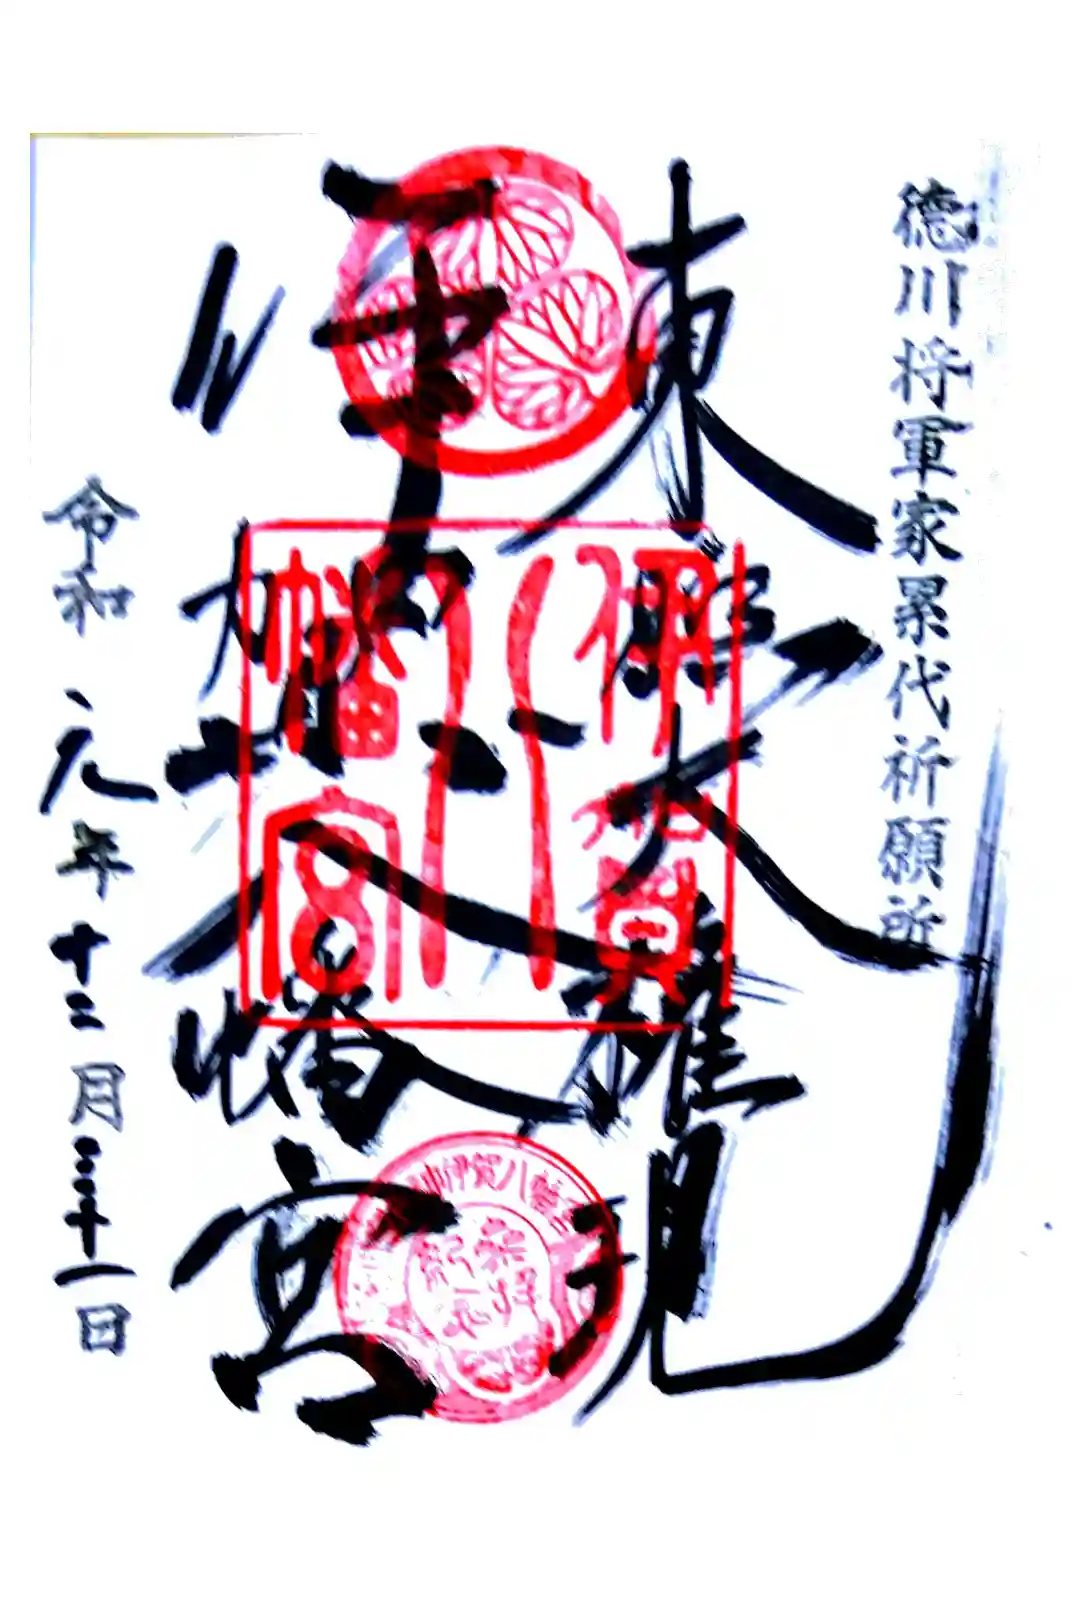 徳川将軍家累代祈願所
東照大権現
伊賀八幡宮
令和元年十二月三十一日
伊賀
八
幡宮
伊賀八幡宮